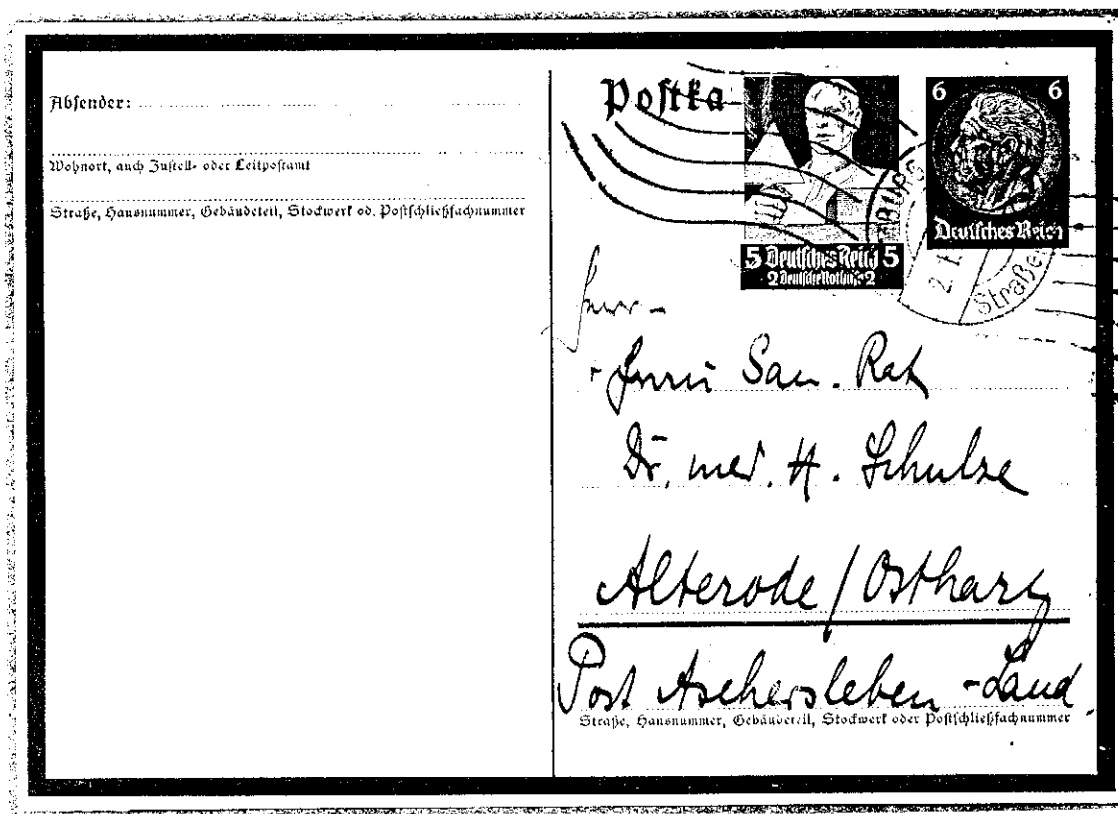 Absender:
Wohnort, auch Zustell- oder Leitpostamt
Straße, Hausnummer, Gebäudeteil, Stockwerk od. Postschließfachnummer
Postka
5 Deutsches Reich 5
2 Deutsche Nothilfe 2
6 6
Deutsches Reich
Straße
Herrn San. Rat
Dr. med. H. Schulze
Alterode / Ostharz
Post Aschersleben-Land
Straße, Hausnummer, Gebäudeteil, Stockwerk oder Postschließfachnummer